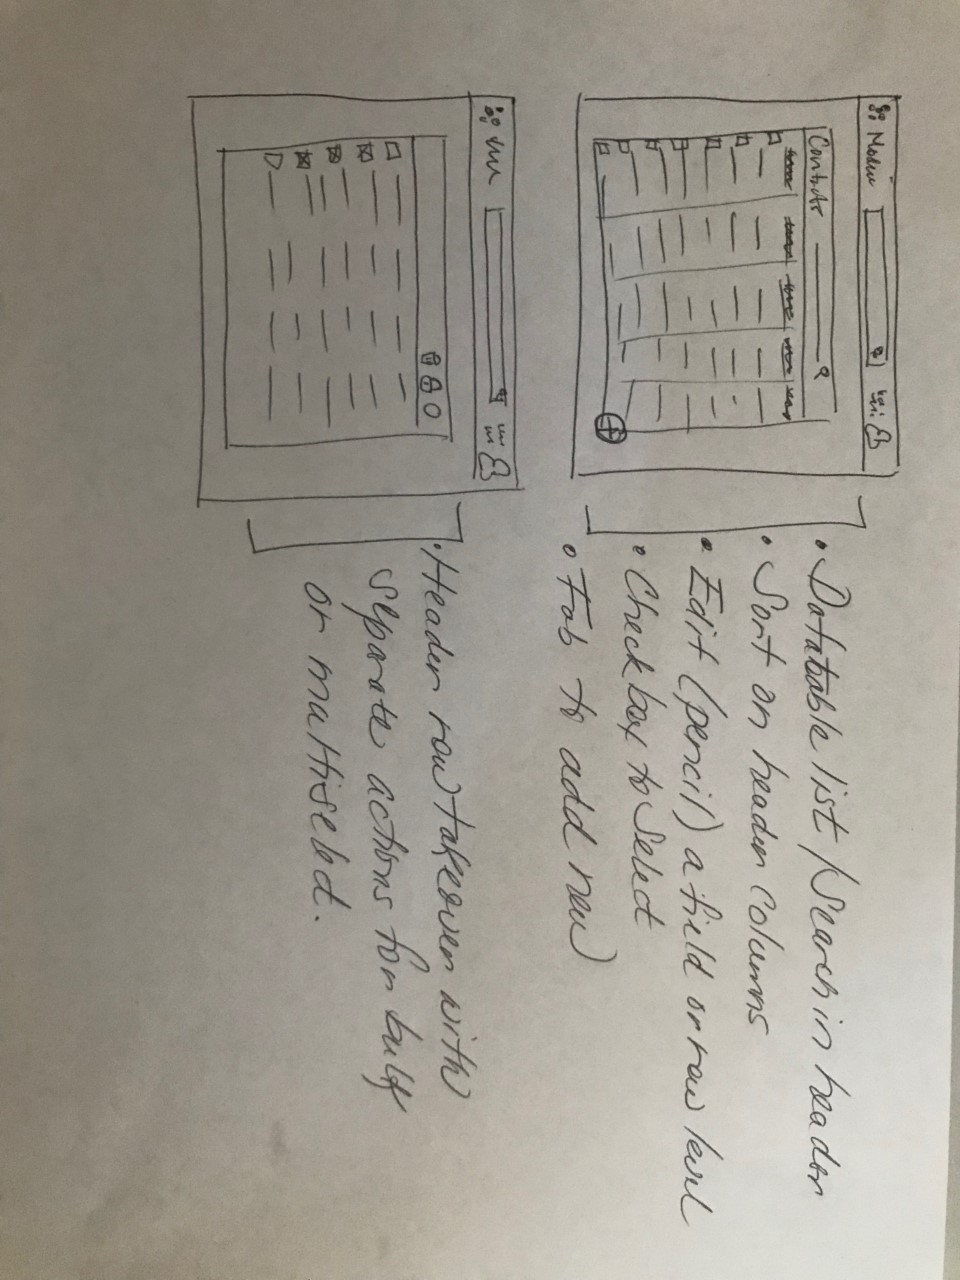 Contacts
• Datatable list / Search in header
• Sort on header columns
• Edit (pencil) a field or row level
• Check box to select
• Fab to add new
• Header row takeover with
separate actions for bulk
or multiselect.